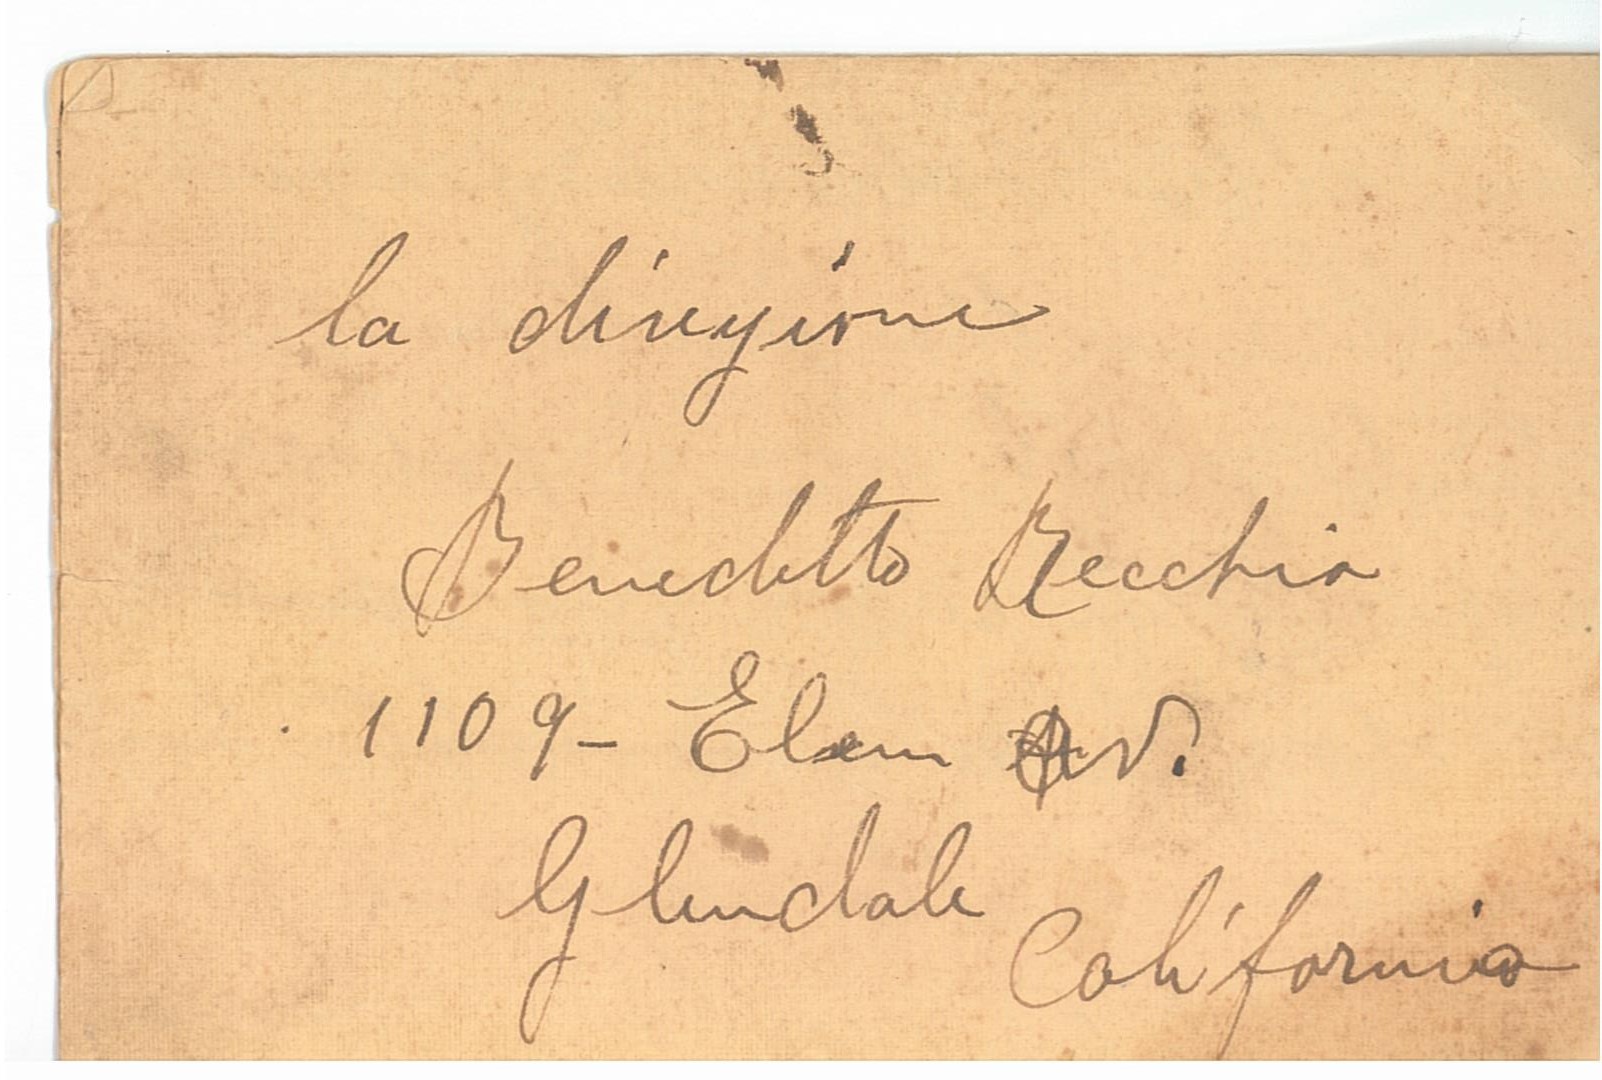 la direzione
Benedetto Recchia
1109- Elem Av.
Glendale
California